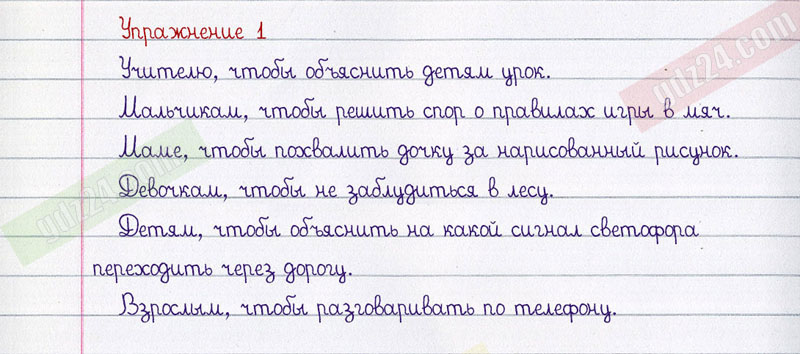 Упражнение 1
Учителю, чтобы объяснить детям урок.
Мальчикам, чтобы решить спор о правилах игры в мяч.
Маме, чтобы похвалить дочку за нарисованный рисунок.
Девочкам, чтобы не заблудиться в лесу.
Детям, чтобы объяснить на какой сигнал светофора
переходить через дорогу.
Взрослым, чтобы разговаривать по телефону.
gdz24.com
gdz24.com